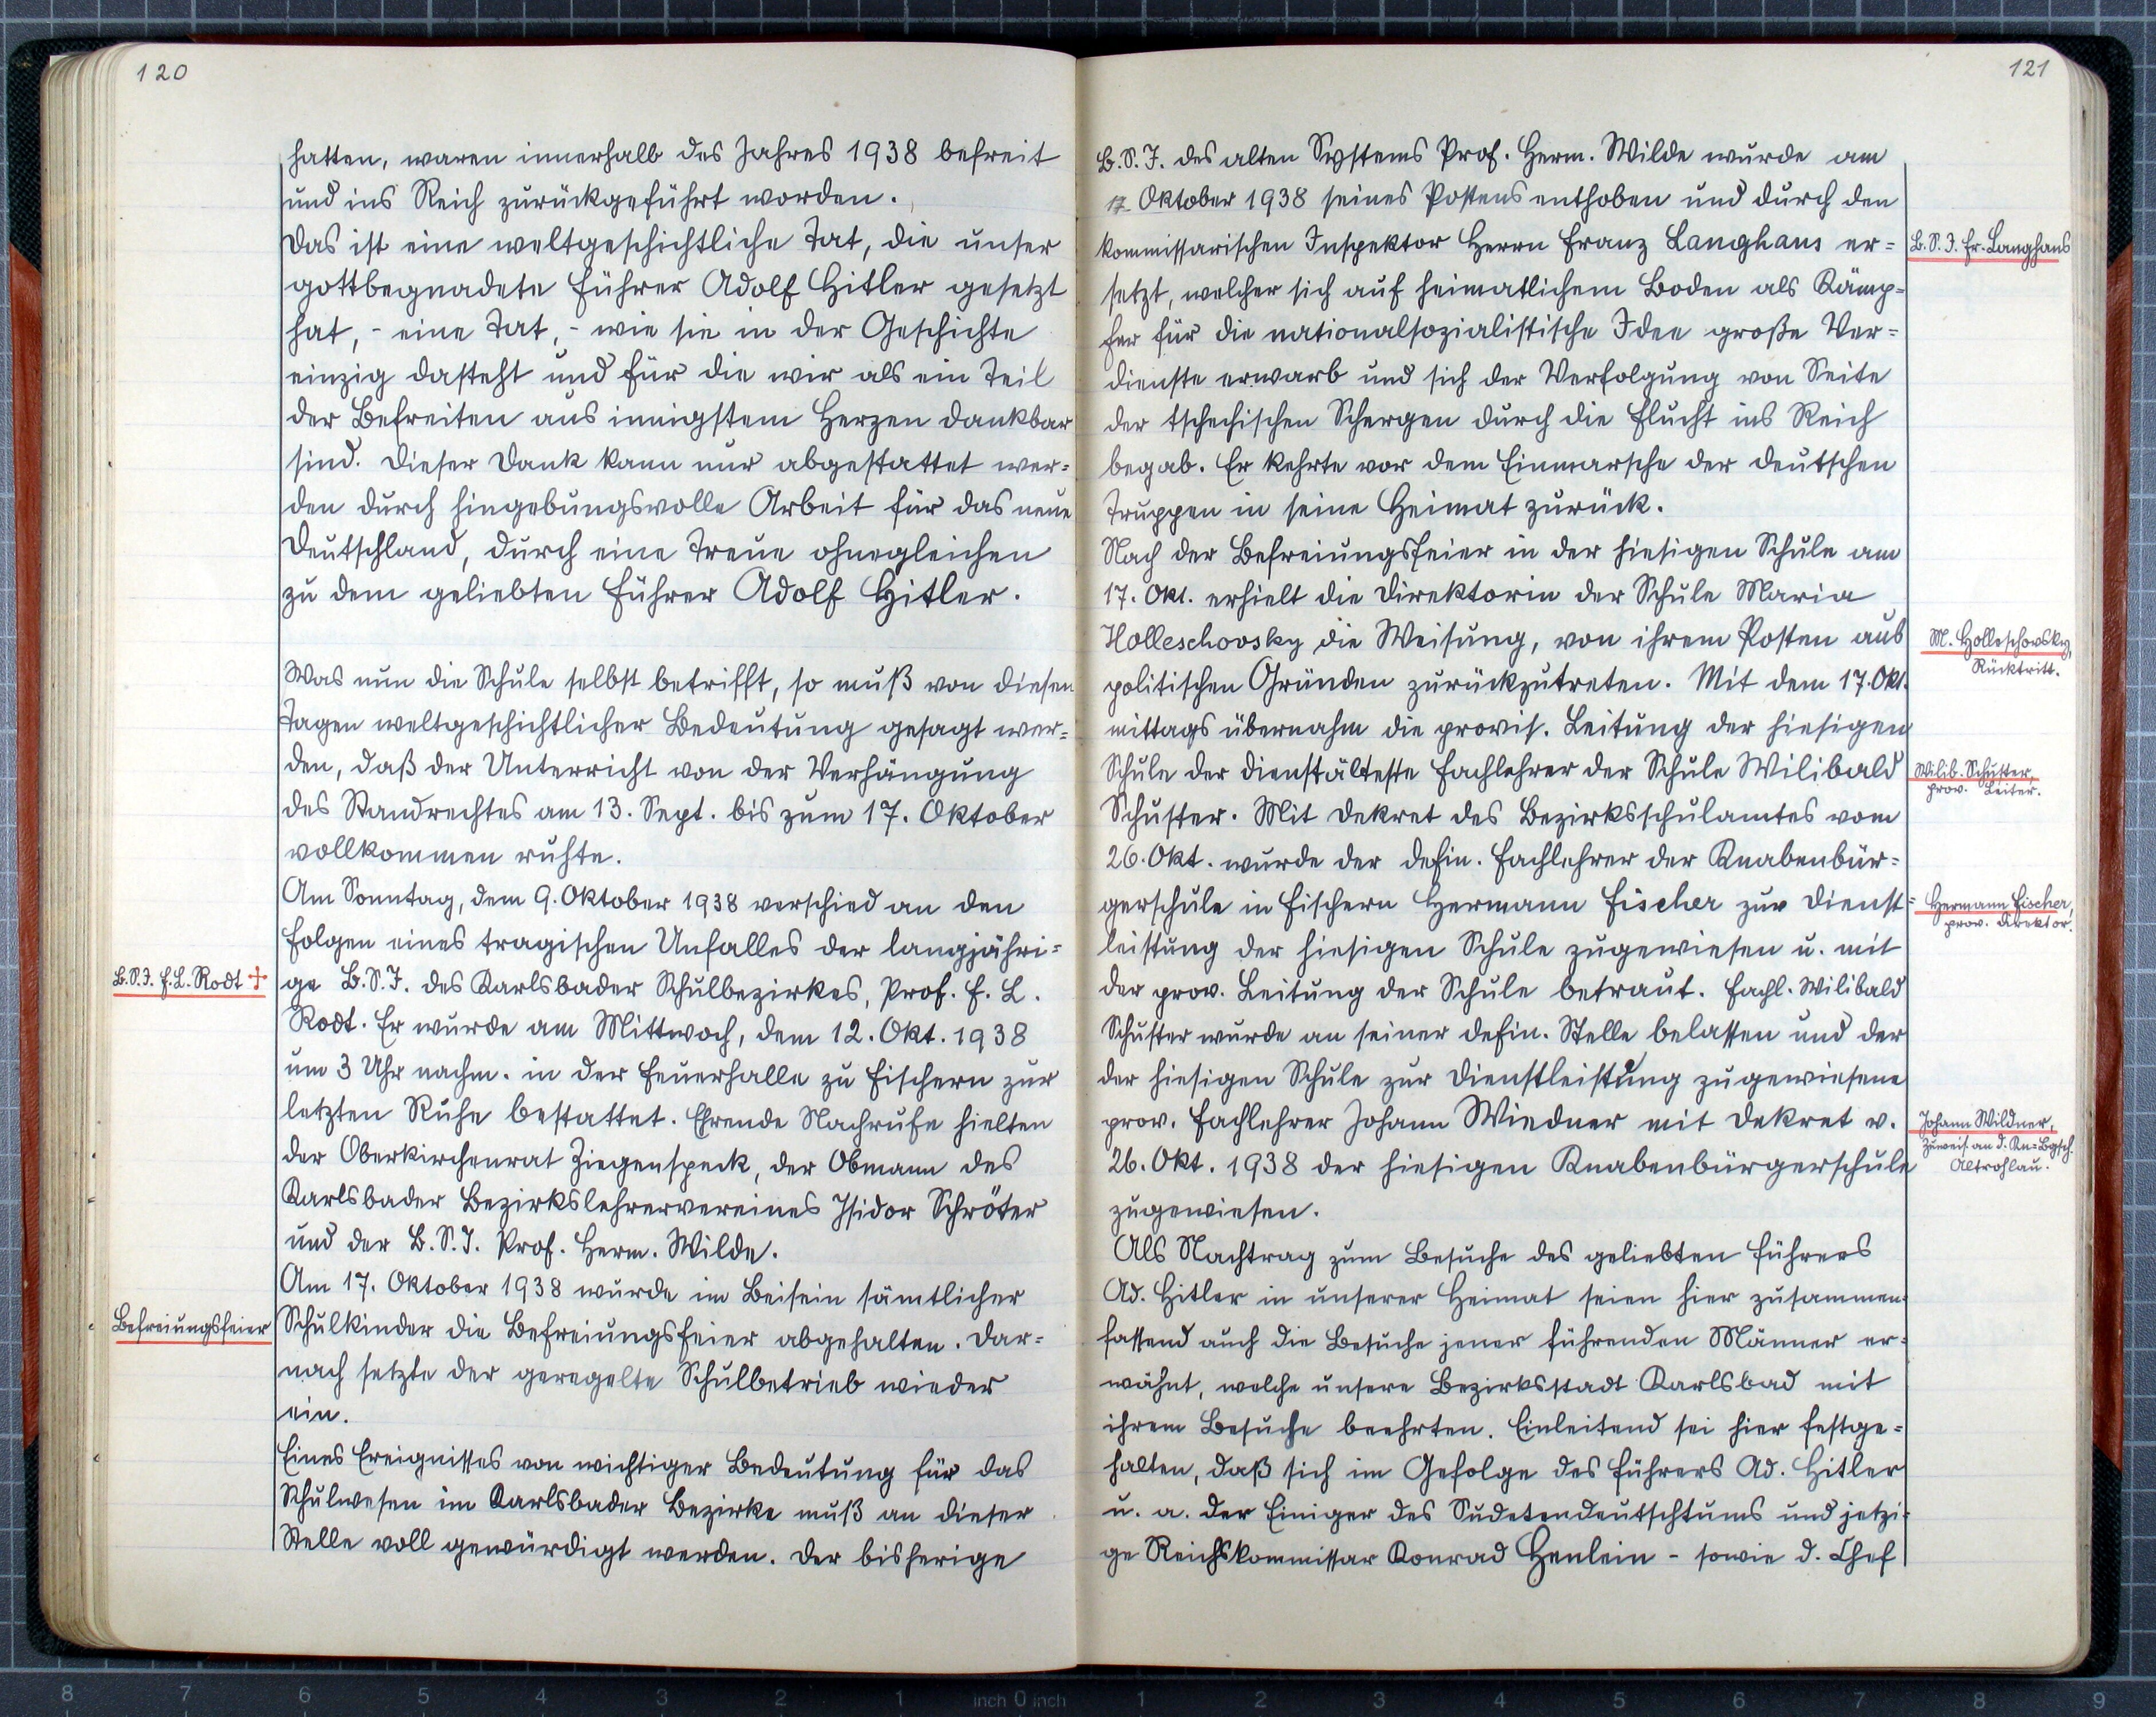 120
hatten, waren innerhalb des Jahres 1938 befreit
und ins Reich zurückgeführt worden.
Das ist eine weltgeschichtliche Tat, die unser
gottbegnadete Führer Adolf Hitler gesetzt
hat, - eine Tat, - wie sie in der Geschichte
einzig dasteht und für die wir als ein Teil
der Befreiten aus innigstem Herzen dankbar
sind. Dieser Dank kann nur abgestattet wer=
den durch hingebungsvolle Arbeit für das neue
Deutschland, durch eine Treue ohnegleichen
zu dem geliebten Führer Adolf Hitler.
Was nun die Schule selbst betrifft, so muß von diesen
Tagen weltgeschichtlicher Bedeutung gesagt wer=
den, daß der Unterricht von der Verhängung
des Standrechtes am 13. Sept. bis zum 17. Oktober
vollkommen ruhte.
Am Sonntag, dem 9. Oktober 1938 verschied an den
Folgen eines tragischen Unfalles der langjähri=
B.S.I. F.L. Rodt +
ge B.S.I. des Karlsbader Schulbezirkes, Prof. F. L.
Rodt. Er wurde am Mittwoch, dem 12. Okt. 1938
um 3 Uhr nachm. in der Feuerhalle zu Fischern zur
letzten Ruhe bestattet. Ehrende Nachrufe hielten
der Oberkirchenrat Ziegenspeck, der Obmann des
Karlsbader Bezirkslehrervereines Isidor Schröter
und der B.S.I. Prof. Herm. Wilde.
Am 17. Oktober 1938 wurde im Beisein sämtlicher
Befreiungsfeier
Schulkinder die Befreiungsfeier abgehalten. Dar=
nach setzte der geregelte Schulbetrieb wieder
ein.
Eines Ereignisses von wichtiger Bedeutung für das
Schulwesen im Karlsbader Bezirke muß an dieser
Stelle voll gewürdigt werden. Der bisherige
121
B.S.I. des alten Systems Prof. Herm. Wilde wurde am
17. Oktober 1938 seines Postens enthoben und durch den
kommissarischen Inspektor Herrn Franz Langhans er=
B.S.I. Fr. Langhans
setzt, welcher sich auf heimatlichem Boden als Kämp=
fer für die nationalsozialistische Idee große Ver=
dienste erwarb und sich der Verfolgung von Seite
der tschechischen Schergen durch die Flucht ins Reich
begab. Er kehrte vor dem Einmarsche der deutschen
Truppen in seine Heimat zurück.
Nach der Befreiungsfeier in der hiesigen Schule am
17. Okt. erhielt die Direktorin der Schule Maria
Holleschovsky die Weisung, von ihrem Posten aus
M. Holleschovsky,
Rücktritt.
politischen Gründen zurückzutreten. Mit dem 17. Okt.
mittags übernahm die provis. Leitung der hiesigen
Schule der dienstälteste Fachlehrer der Schule Wilibald
Wilib. Schuster,
prov. Leiter.
Schuster. Mit Dekret des Bezirksschulamtes vom
26. Okt. wurde der defin. Fachlehrer der Knabenbür=
gerschule in Fischern Hermann Fischer zur Dienst=
Hermann Fischer,
prov. Direktor.
leistung der hiesigen Schule zugewiesen u. mit
der prov. Leitung der Schule betraut. Fachl. Wilibald
Schuster wurde an seiner defin. Stelle belassen und der
der hiesigen Schule zur Dienstleistung zugewiesene
prov. Fachlehrer Johann Wiedner mit Dekret v.
Johann Wildner,
Zuweis. an d. Kn=Bgsch.
Altrohlau.
26. Okt. 1938 der hiesigen Knabenbürgerschule
zugewiesen.
Als Nachtrag zum Besuche des geliebten Führers
Ad. Hitler in unserer Heimat seien hier zusammen=
fassend auch die Besuche jener führenden Männer er=
wähnt, welche unsere Bezirksstadt Karlsbad mit
ihrem Besuche beehrten. Einleitend sei hier festge=
halten, daß sich im Gefolge des Führers Ad. Hitler
u. a. der Einiger des Sudetendeutschtums und jetzi=
ge Reichskommissar Konrad Henlein - sowie d. Chef
8 7 6 5 4 3 2 1 inch 0 inch 1 2 3 4 5 6 7 8 9